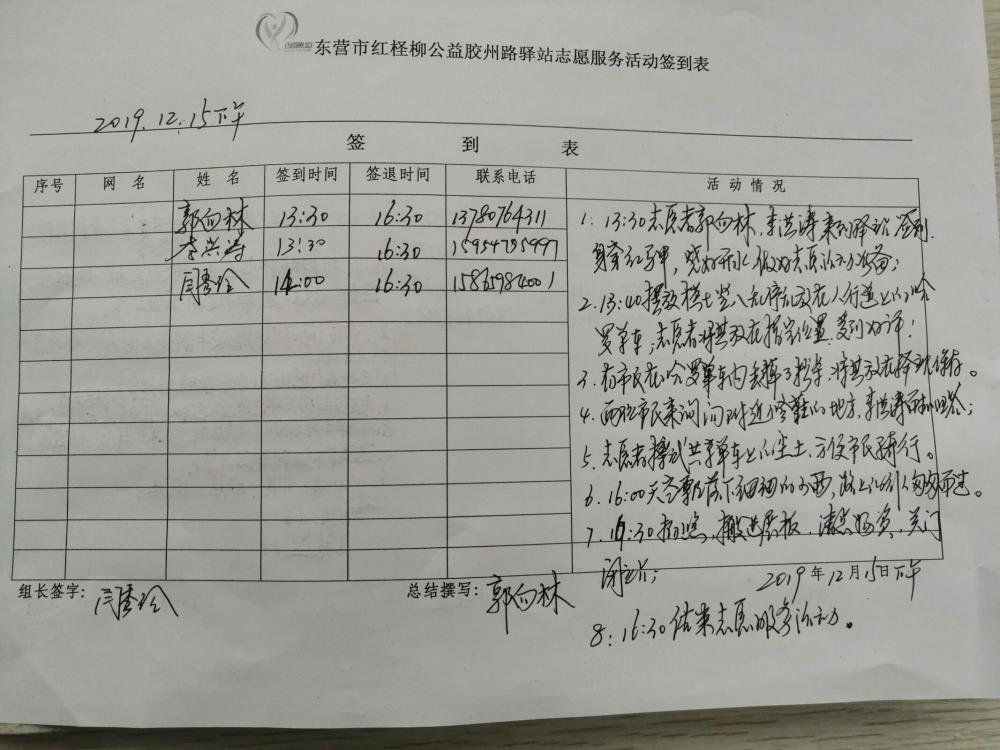 东营市红柽柳公益胶州路驿站志愿服务活动签到表
2019.12.15下午
签 到 表
序号 网 名 姓 名 签到时间 签退时间 联系电话 活 动 情 况
郭向林 13:30 16:30 13780764311
李洪涛 13:30 16:30 15954785997
闫秀玲 14:00 16:30 15865984001
1. 13:30志愿者郭向林、李洪涛来到驿站签到.
身穿红马甲,烧好开水,做好志愿活动准备;
2. 13:40摆放横七竖八乱序乱放在人行道上的哈
罗单车,志愿者将其放在指定位置.受到好评!
3. 有市民在哈罗单车内丢掉了,将其放在驿站保存。
4. 两位市民来询问附近修鞋的地方,李洪涛;
5. 志愿者擦拭共享单车上的尘土,方便市民骑行。
6. 16:00天空飘落下细细的小雨,路上的行人匆匆而过。
7. 16:30拍照,搬进展板,清点物资,关门
闭站;
2019年12月15日下午
8. 16:30结束志愿服务活动。
组长签字: 闫秀玲 总结撰写: 郭向林